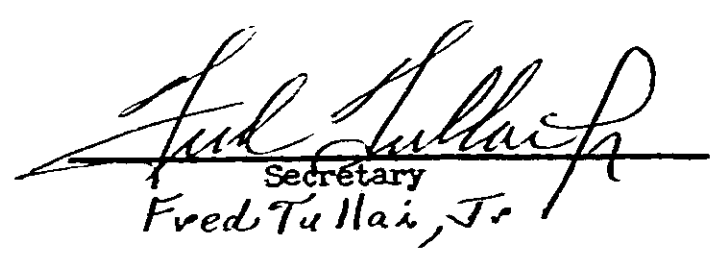 Fred Tullai Jr
Secretary
Fred Tullai, Jr